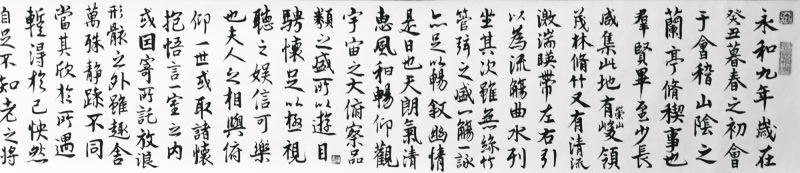 永和九年歲在
癸丑暮春之初會
于會稽山陰之
蘭亭脩禊事也
羣賢畢至少長
咸集此地有崇山峻領
茂林脩竹又有清流
激湍暎帶左右引
以為流觴曲水列
坐其次雖無絲竹
管弦之盛一觴一詠
亦足以暢敘幽情
是日也天朗氣清
惠風和暢仰觀
宇宙之大俯察品
類之盛所以遊目
騁懷足以極視
聽之娛信可樂
也夫人之相與俯
仰一世或取諸懷
抱悟言一室之內
或因寄所託放浪
形骸之外雖趣舍
萬殊靜躁不同
當其欣於所遇
得於己快然
自足不知老之將